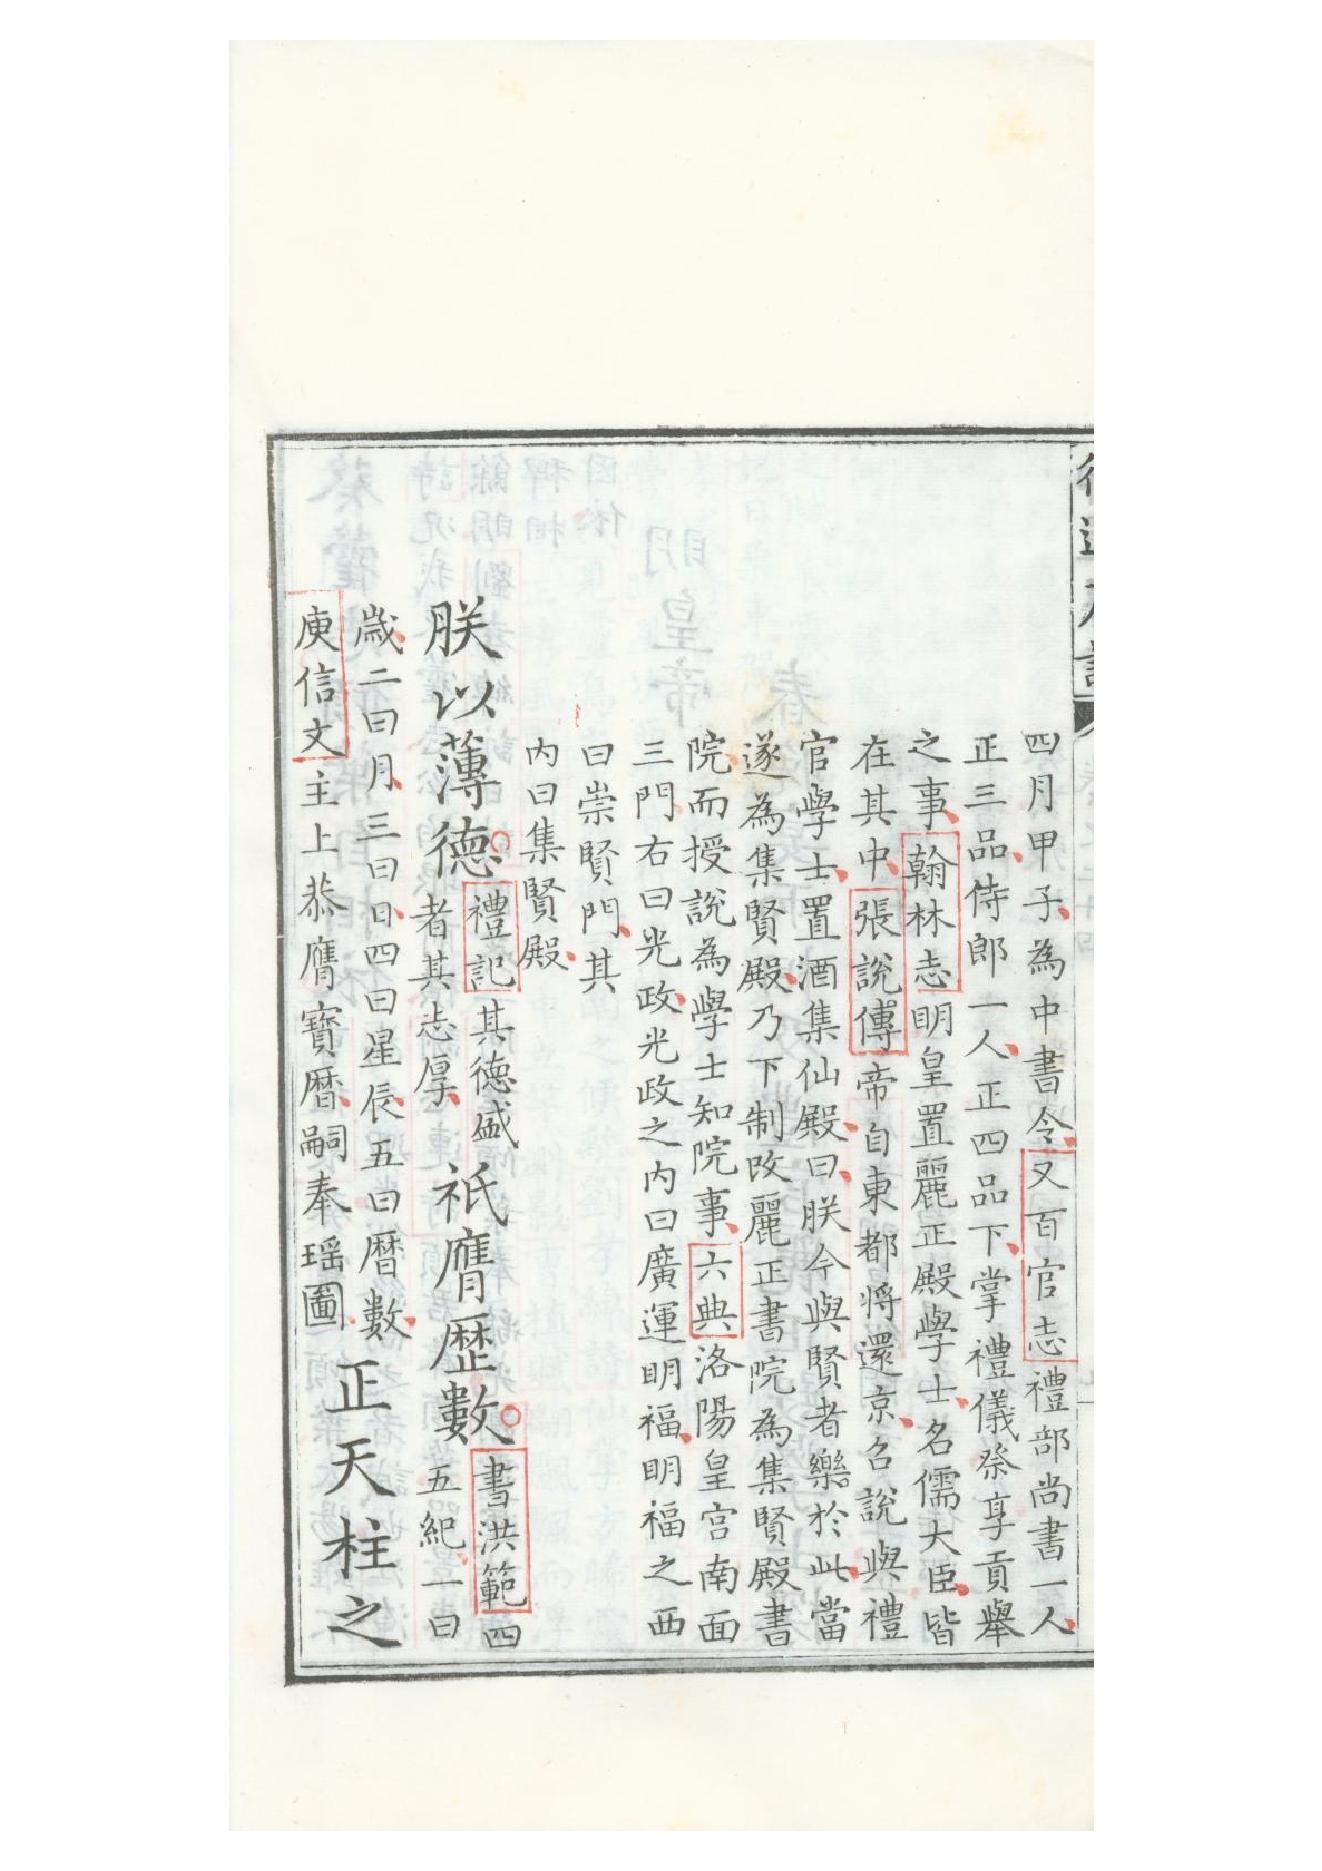 四月甲子為中書令又百官志禮部尚書一人
正三品侍郎一人正四品下掌禮儀祭享貢舉
之事翰林志明皇置麗正殿學士名儒大臣皆
在其中張說傳帝自東都將還京召說與禮
官學士置酒集仙殿曰朕今與賢者樂於此當
遂為集賢殿乃下制改麗正書院為集賢殿書
院而授說為學士知院事六典洛陽皇宮南面
三門右曰光政光政之內曰廣運明福明福之西
曰崇賢門其
內曰集賢殿
朕以薄德
禮記其德盛
者其志厚
祇膺歷數
書洪範四
五紀一曰
歲二曰月三曰日四曰星辰五曰暦數
庾信文主上恭膺寶暦嗣奉瑶圖
正天柱之